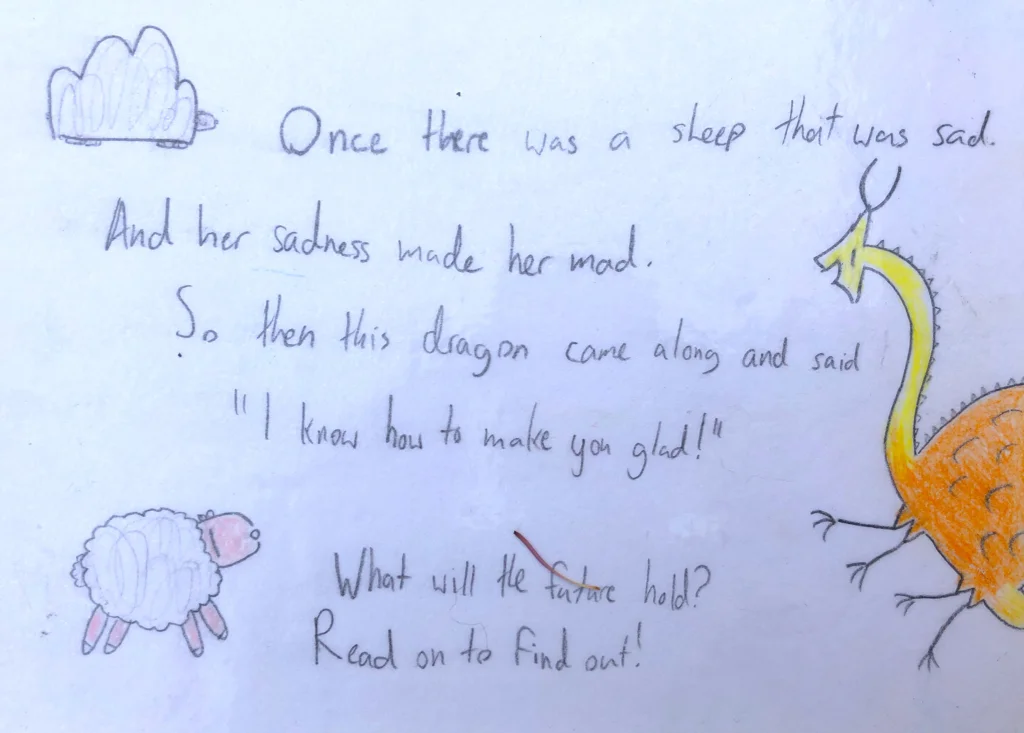 Once there was a sheep that was sad.
And her sadness made her mad.
So then this dragon came along and said
"I know how to make you glad!"
What will the future hold?
Read on to find out!